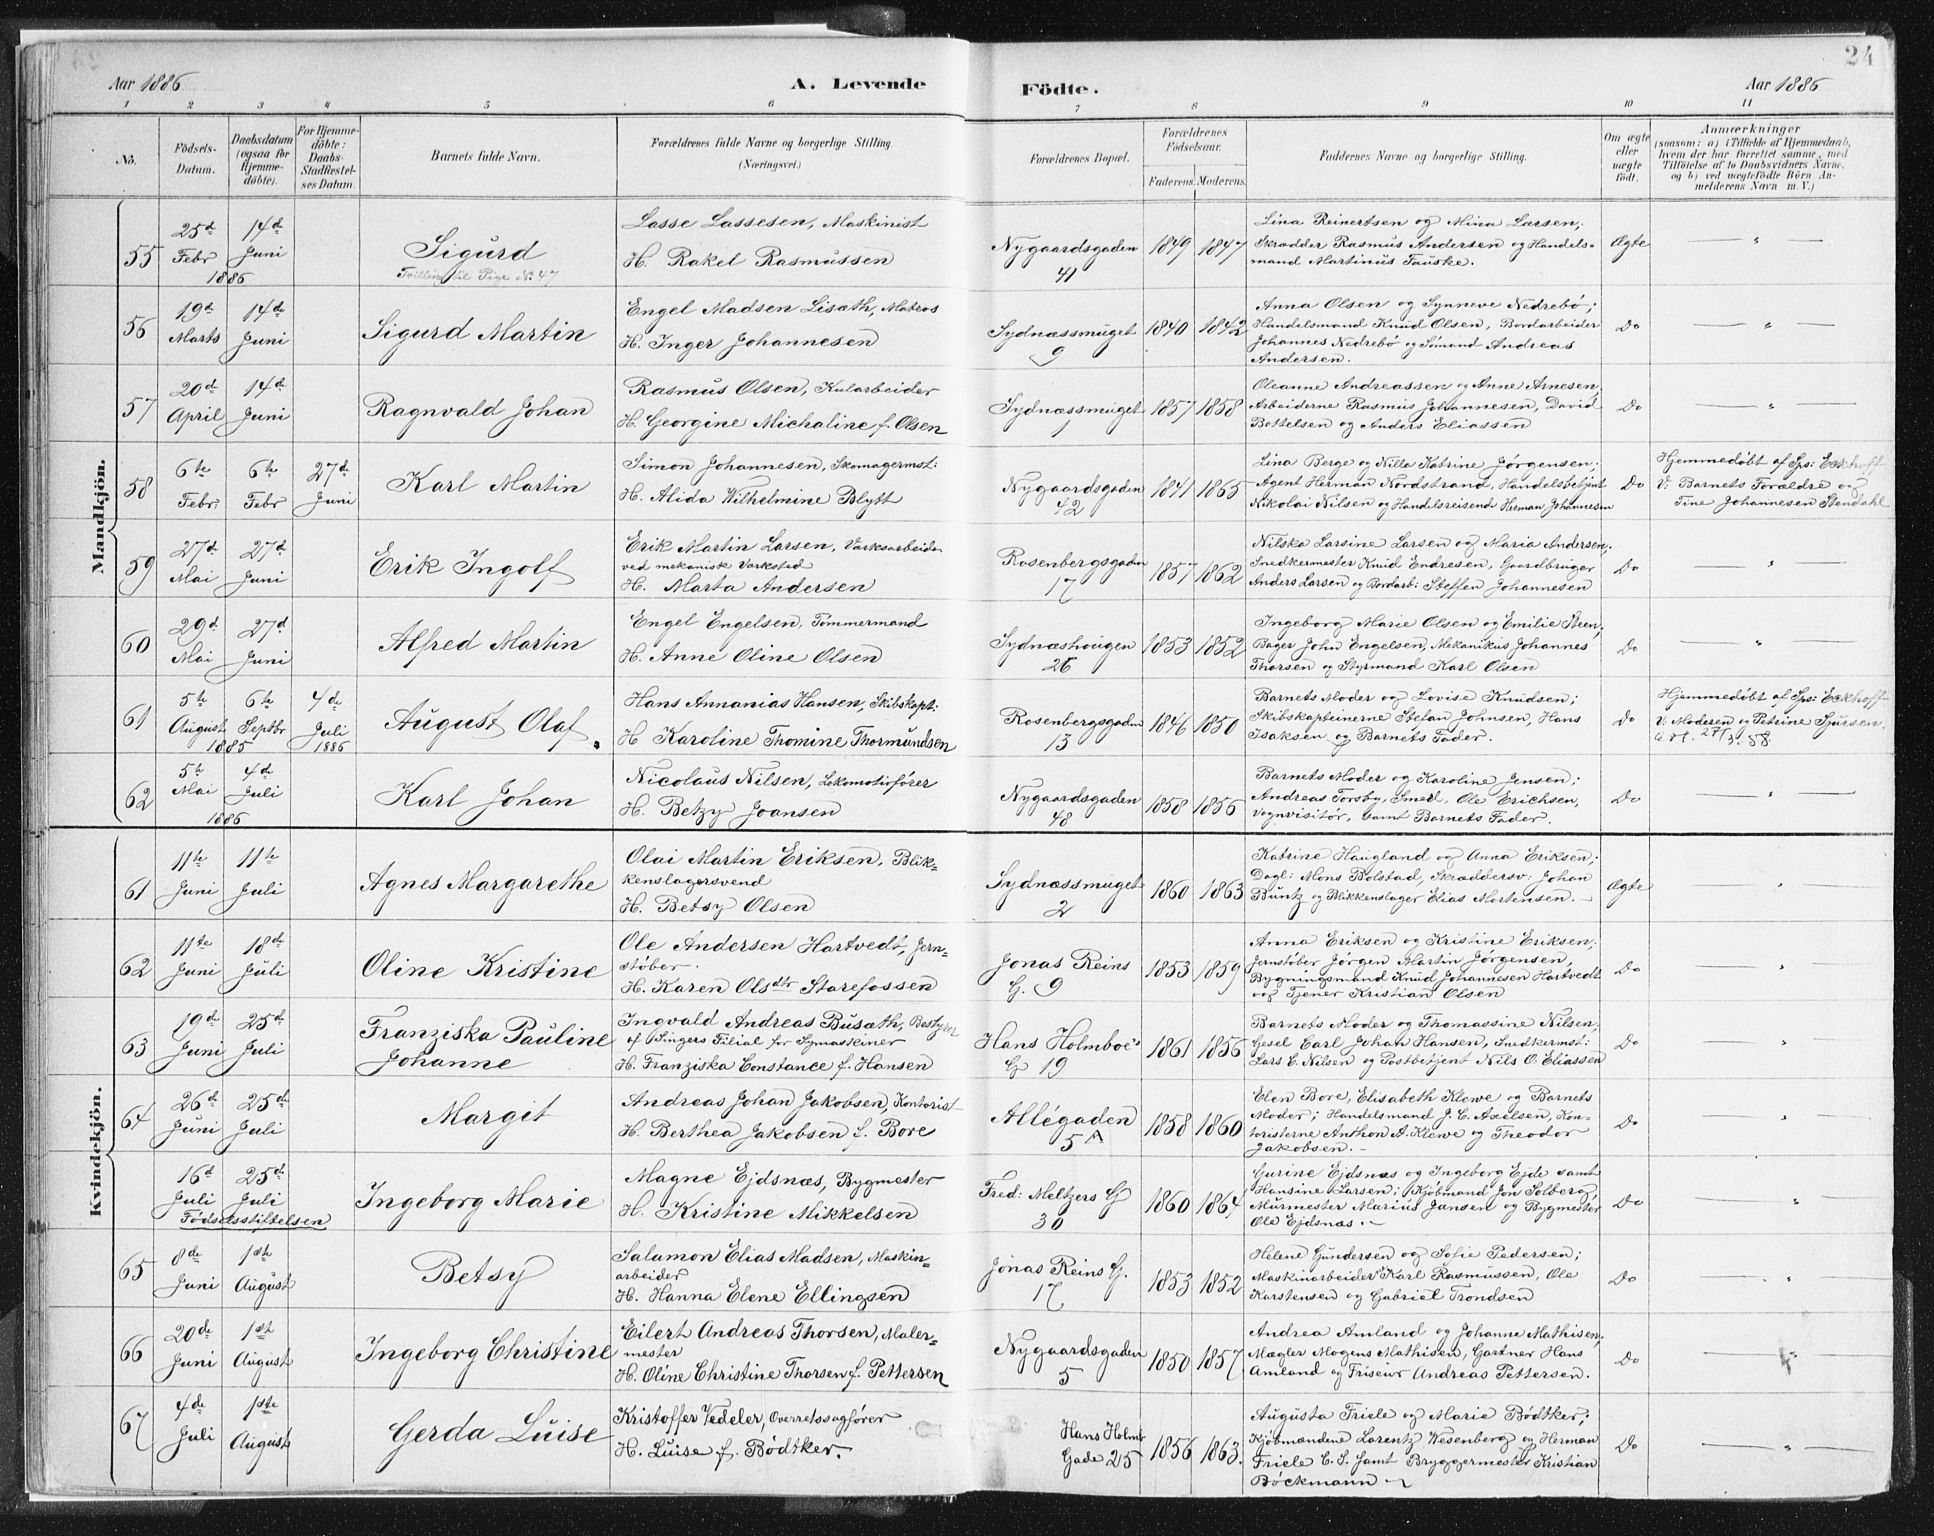 24
Aar 1886
A. Levende
Födte.
Aar 1886
1 2 3 4 5 6 7 8 9 10 11
No.
Födsels-Datum.
Daabsdatum (ogsaa for Hjemme-döbte).
For Hjemme-döbte: Daabs-Stadfæstel-ses Datum.
Barnets fulde Navn.
Forældrenes fulde Navne og borgerlige Stilling. (Næringsvei.)
Forældrenes Bopæl.
Forældrenes Födselsaar.
Faderens. Moderens.
Faddernes Navne og borgerlige Stilling.
Om ægte eller uægte födt.
Anmærkninger
(saasom: a) i Tilfælde af Hjemmedaab,
hvem der har forrettet samme, med
Tilföielse af to Daabsvidners Navne,
og b) ved uægtefödte Börn An-
melderens Navn m. V.)
Mandkjön.
55 25d Febr 1886 14d Juni
Sigurd
Tvilling til Pige No. 47
Lasse Lassesen, Maskinist
H. Rakel Rasmussen
Nygaardsgaden 41
1849 1847
Lina Reinertsen og Mina Larsen,
Skrædder Rasmus Andersen og Handels-
mand Martinus Fauske.
Ægte
— " —
56 19d Marts 14de Juni
Sigurd Martin
Engel Madsen Lisæth, Matros
H. Inger Johannesen
Sydnæssmuget 9
1840 1842
Anna Olsen og Synneve Nedrebö;
Handelsmand Knud Olsen, Bordarbeider
Johannes Nedrebö og Sömand Andreas
Andersen.
Do
— " —
57 20d April 14de Juni
Ragnvald Johan
Rasmus Olsen, Kularbeider
H. Georgine Michaline f. Olsen
Sydnæssmuget 1
1857 1858
Oleanne Andreassen og Anne Arnesen,
Arbeiderne Rasmus Johannesen, David
Bottelsen og Anders Eliassen
Do
— " —
58 6te Febr: 6te Febr 27d Juni
Karl Martin
Simon Johannesen, Skomagermst:
H. Alida Wilhelmine Blytt
Nygaardsgaden 42
1841 1865
Lina Berge og Nilla Katrine Jörgensen;
Agent Herman Nordstrand, Handelsbetjent
Nikolai Nilsen og Handelsreisende Herman Johannesen
Do
Hjemmedöbt af Sps: Eckhoff
V: Barnets Forældre og
Tine Johannesen Stendahl
59 27d Mai 27d Juni
Erik Ingolf
Erik Martin Larsen, Værksarbeider
ved mekanisk Værksted
H. Marta Andersen
Rosenbergsgaden 17
1857 1862
Nilska Larsine Larsen og Maria Andersen;
Snedkermester Knud Endresen, Gaardbruger
Anders Larsen og Bordarb: Steffen Johannesen
Do
— " —
60 29d Mai 27d Juni
Alfred Martin
Engel Engelsen, Tömmermand
H. Anne Oline Olsen
Sydnæshougen 26
1853 1852
Ingeborg Marie Olsen og Emilie Steen,
Bager John Engelsen, Mekanikus Johannes
Thorsen og Styrmand Karl Olsen
Do
— " —
61 5te August 6te Septbr 1885 4de Juli 1886
August Olaf
Hans Annanias Hansen, Skibskapt:
H Karoline Thomine Thormundsen
Rosenbergsgaden 13
1846 1850
Barnets Moder og Lovise Knudsen;
Skibskapteinerne Stefan Johnsen, Hans
Isaksen og Barnets Fader.
Do
Hjemmedöbt af Sps: Eckhoff
V: Moderen og Petrine Sjursen
27/3-58.
62 5te Mai 1886 4d Juli
Karl Johan
Nicolaus Nilsen, Lokomotivförer
H. Betzy Joansen
Nygaardsgaden 48
1858 1856
Barnets Moder og Karoline Jensen;
Andreas Torsby, Smed, Ole Erichsen,
Vognvisitör, samt Barnets Fader.
Do
— " —
Kvindekjön.
61 11te Juni 11te Juli
Agnes Margarethe
Olai Martin Eriksen, Blik-
kenslagersvend
H. Betsy Olsen
Sydnæssmuget 2
1860 1863
Katrine Haugland og Anna Eriksen;
Dagl: Mons Bolstad, Skræddersv: Johan
Buntz og Blikkenslager Elias Mortensen.
Ægte
" —
62 11te Juni 18de Juli
Oline Kristine
Ole Andersen Hartvedt, Jern-
stöber.
H. Karen Olsdtr Starefossen
Jonas Reins G. 9
1853 1859
Anna Eriksen og Kristine Eriksen,
Jernstöber Jörgen Martin Jörgensen,
Bygningsmand Knud Johannesen Hartvedt
og Tjener Kristian Olsen
Do
" —
63 19d Juni 25d Juli
Franziska Pauline
Johanne
Ingvald Andreas Busæth, Bestyrer
af Singers Filial for Symaskiner
H. Franziska Constance f. Hansen
Hans Holmboe's G 19
1861 1856
Barnets Moder og Thomassine Nilsen,
Gesel Carl Johan Hansen, Snedkermst:
Lars E. Nilsen og Postbetjent Nils O. Eliassen
Do
" —
64 26d Juni 25de Juli
Margit
Andreas Johan Jakobsen, Kontorist
H. Berthea Jakobsen f. Bore
Allégaden 5 A
1858 1860
Elen Bore, Elisabeth Klewe og Barnets
Moder; Handelsmand J. C. Axelsen, Kon-
toristerne Anthon A. Klewe og Theodor
Jakobsen.
Do
" —
16d Juli 25d Juli
Födselsstiftelsen
Ingeborg Marie
Magne Ejdsnæs, Bygmester
H. Kristine Mikkelsen
Fred: Meltzers G 30
1860 1864
Gurine Ejdsnæs og Ingeborg Ejde samt
Hansine Larsen; Kjöbmand Jon Solberg,
Murmester Marius Jansen og Bygmester
Ole Ejdsnæs.
Do
" —
65 8de Juni 1ste August
Betsy
Salamon Elias Madsen, Maskin-
arbeider
H. Hanna Elene Ellingsen
Jonas Reins G. 17
1853 1852
Helene Gundersen og Sofie Pedersen;
Maskinarbeider Karl Rasmussen, Ole
Karstensen og Gabriel Trondsen
Do
" —
66 20de Juni 1st August
Ingeborg Christine
Eilert Andreas Thorsen, Maler-
mester
H. Oline Christine Thorsen f. Pettersen
Nygaardsgaden 5
1850 1857
Andrea Amland og Johanne Mathisen;
Mægler Mogens Mathisen, Gartner Hans
Amland og Friseur Andreas Pettersen.
Do
"
67 4de Juli 1ste August
Gerda Luise
Kristoffer Vedeler, Overretssagförer
H. Luise f. Bödtker.
Hans Holmb Gade 25
1856 1863.
Augusta Friele og Marie Bödtker;
Kjöbmændene Lorentz Wesenberg og Herman
Friele C. S. samt Bryggermester Kristian
Böckmann
Do
— " —